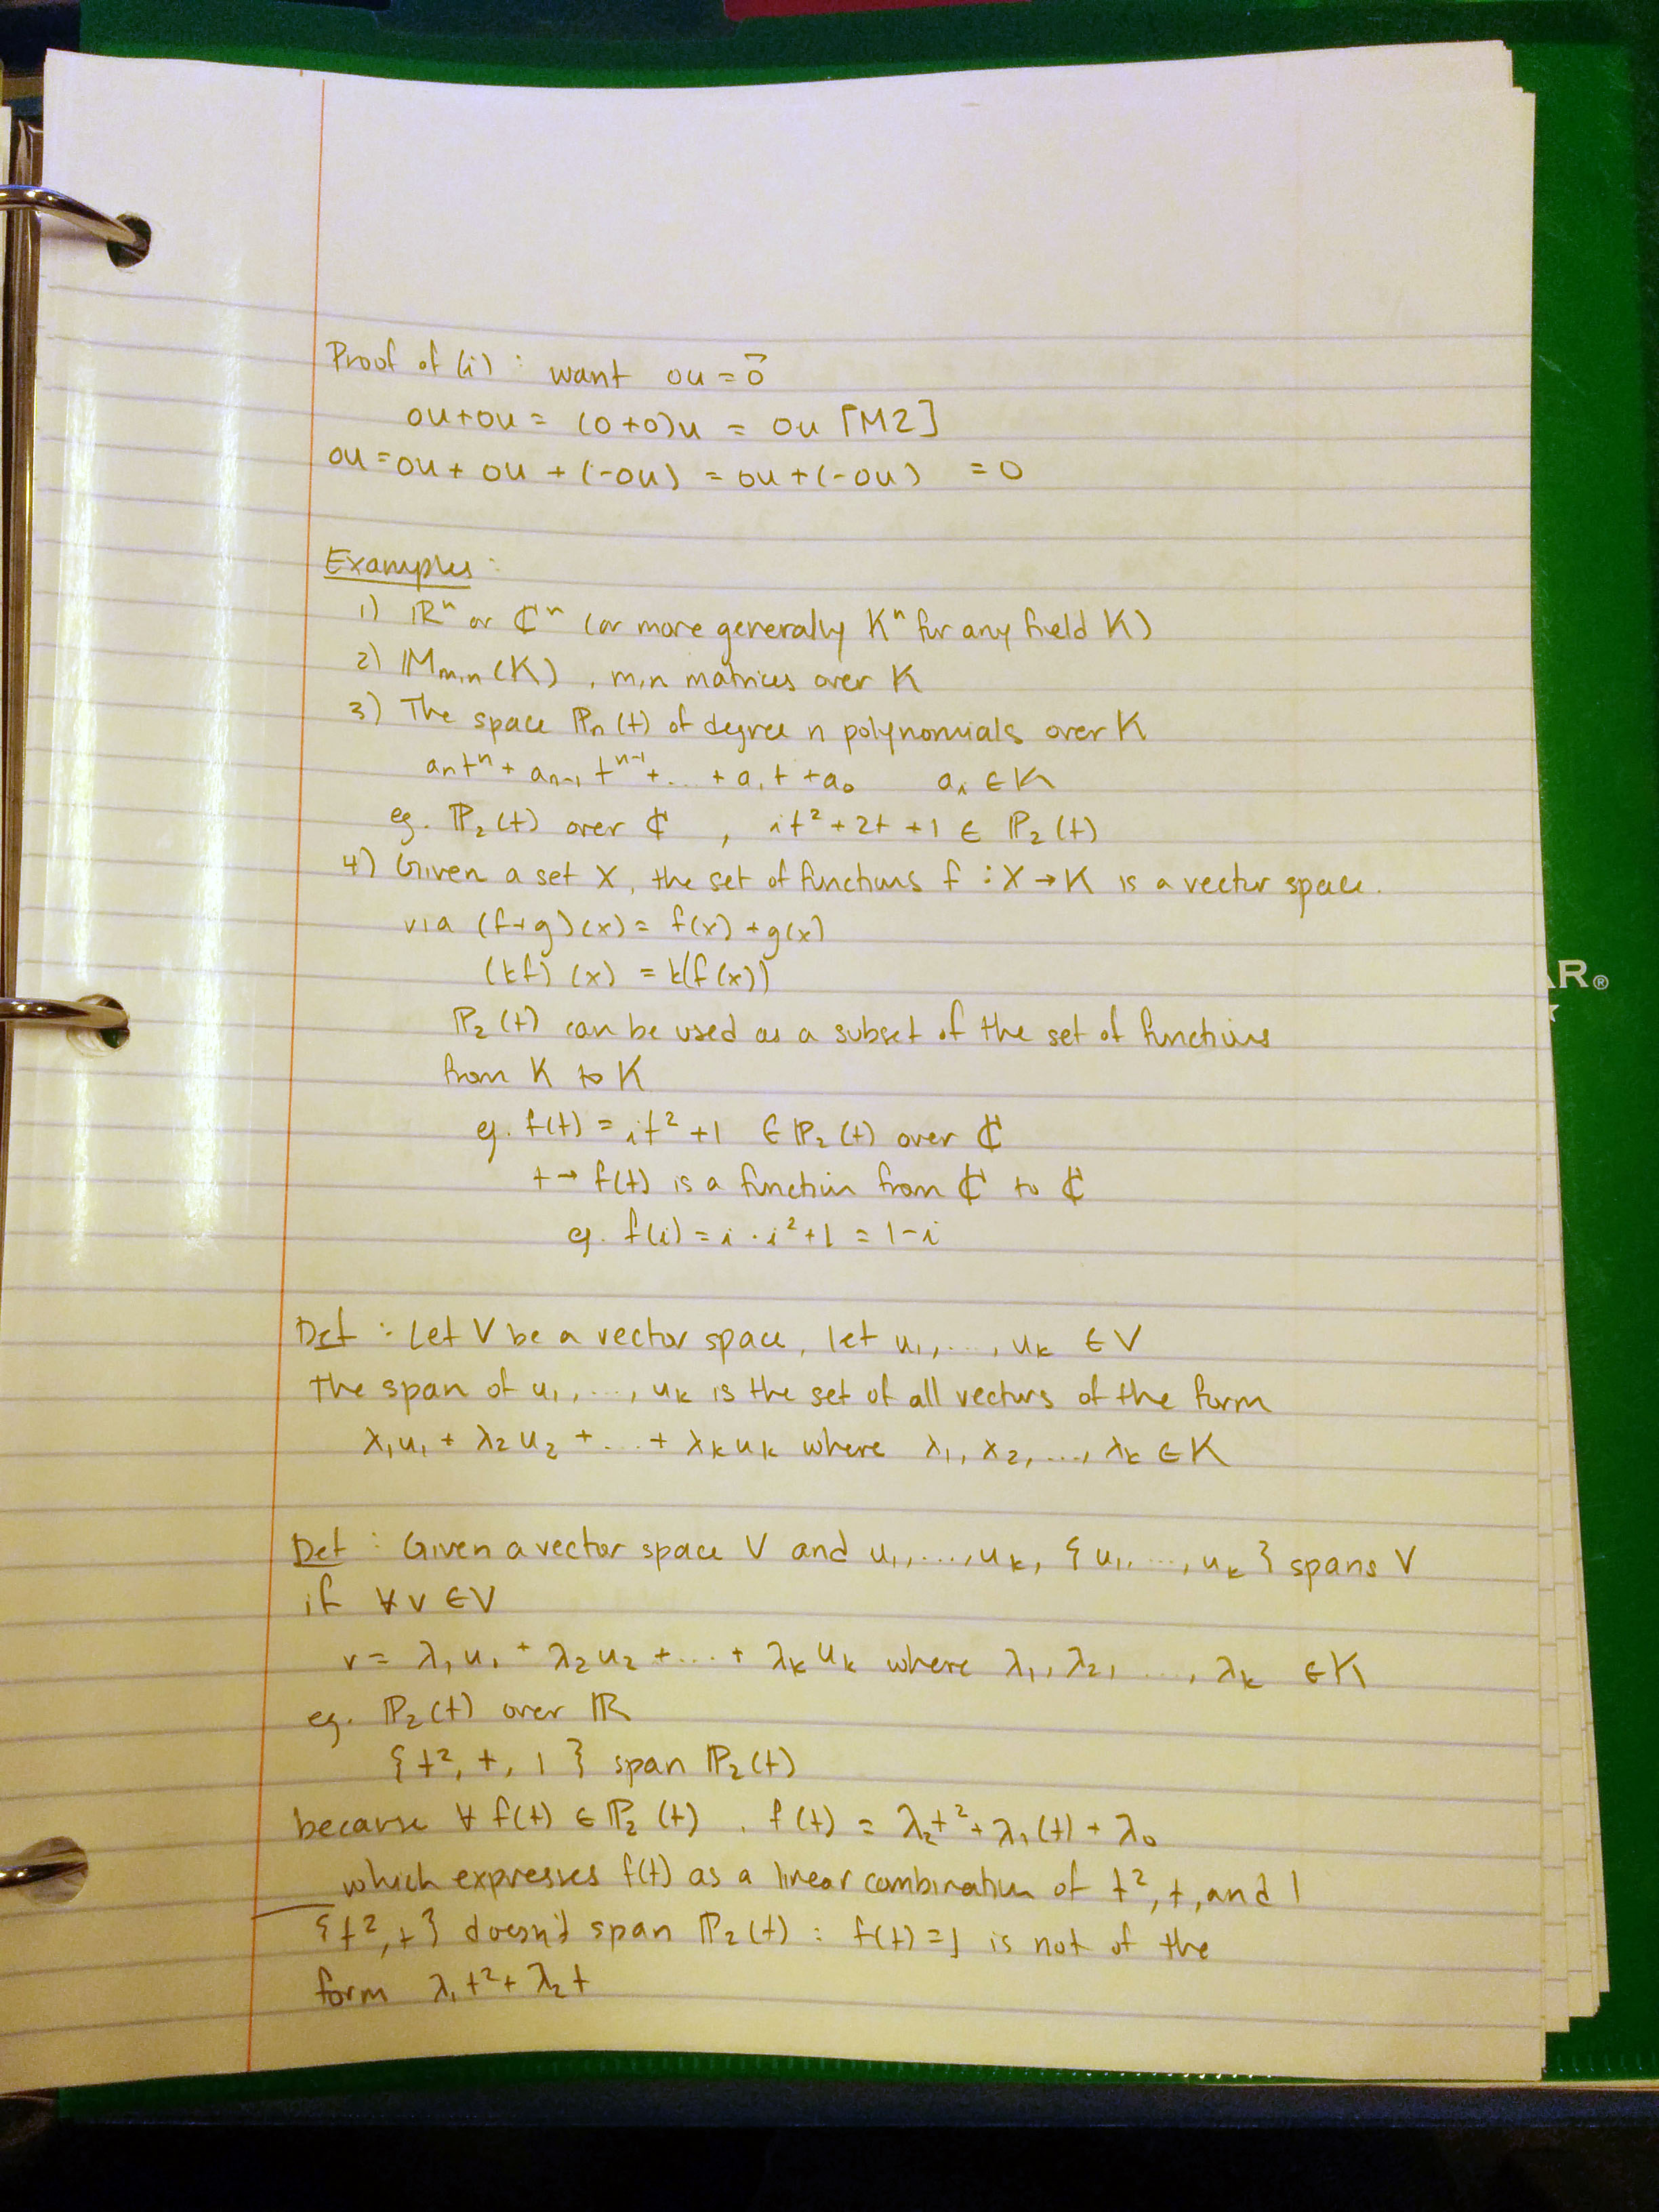 Proof of (i) : want 0u = 0⃗
0u + 0u = (0+0)u = 0u [M2]
0u = 0u + 0u + (-0u) = 0u + (-0u) = 0
Examples :
1) ℝⁿ or ℂⁿ (or more generally Kⁿ for any field K)
2) 𝕄m,n (K) , m,n matrices over K
3) The space ℙn (t) of degree n polynomials over K
aₙtⁿ + aₙ₋₁ tⁿ⁻¹ + ... + a₁t + a₀ aᵢ ∈ K
eg. ℙ₂(t) over ℂ , it² + 2t + 1 ∈ ℙ₂(t)
4) Given a set X, the set of functions f : X → K is a vector space.
via (f+g)(x) = f(x) + g(x)
(kf)(x) = k(f(x))
ℙ₂(t) can be used as a subset of the set of functions
from K to K
eg. f(t) = it² + 1 ∈ ℙ₂(t) over ℂ
t → f(t) is a function from ℂ to ℂ
eg. f(i) = i · i² + 1 = 1 - i
AR®
Def : Let V be a vector space, let u₁, ..., uₖ ∈ V
The span of u₁, ..., uₖ is the set of all vectors of the form
λ₁u₁ + λ₂u₂ + ... + λₖuₖ where λ₁, λ₂, ..., λₖ ∈ K
Def : Given a vector space V and u₁, ..., uₖ, {u₁, ..., uₖ} spans V
if ∀ v ∈ V
v = λ₁u₁ + λ₂u₂ + ... + λₖuₖ where λ₁, λ₂, ..., λₖ ∈ K
eg. ℙ₂(t) over ℝ
{t², t, 1} span ℙ₂(t)
because ∀ f(t) ∈ ℙ₂(t) , f(t) = λ₂t² + λ₁(t) + λ₀
which expresses f(t) as a linear combination of t², t, and 1
{t², t} doesn't span ℙ₂(t) : f(t) = 1 is not of the
form λ₁t² + λ₂t